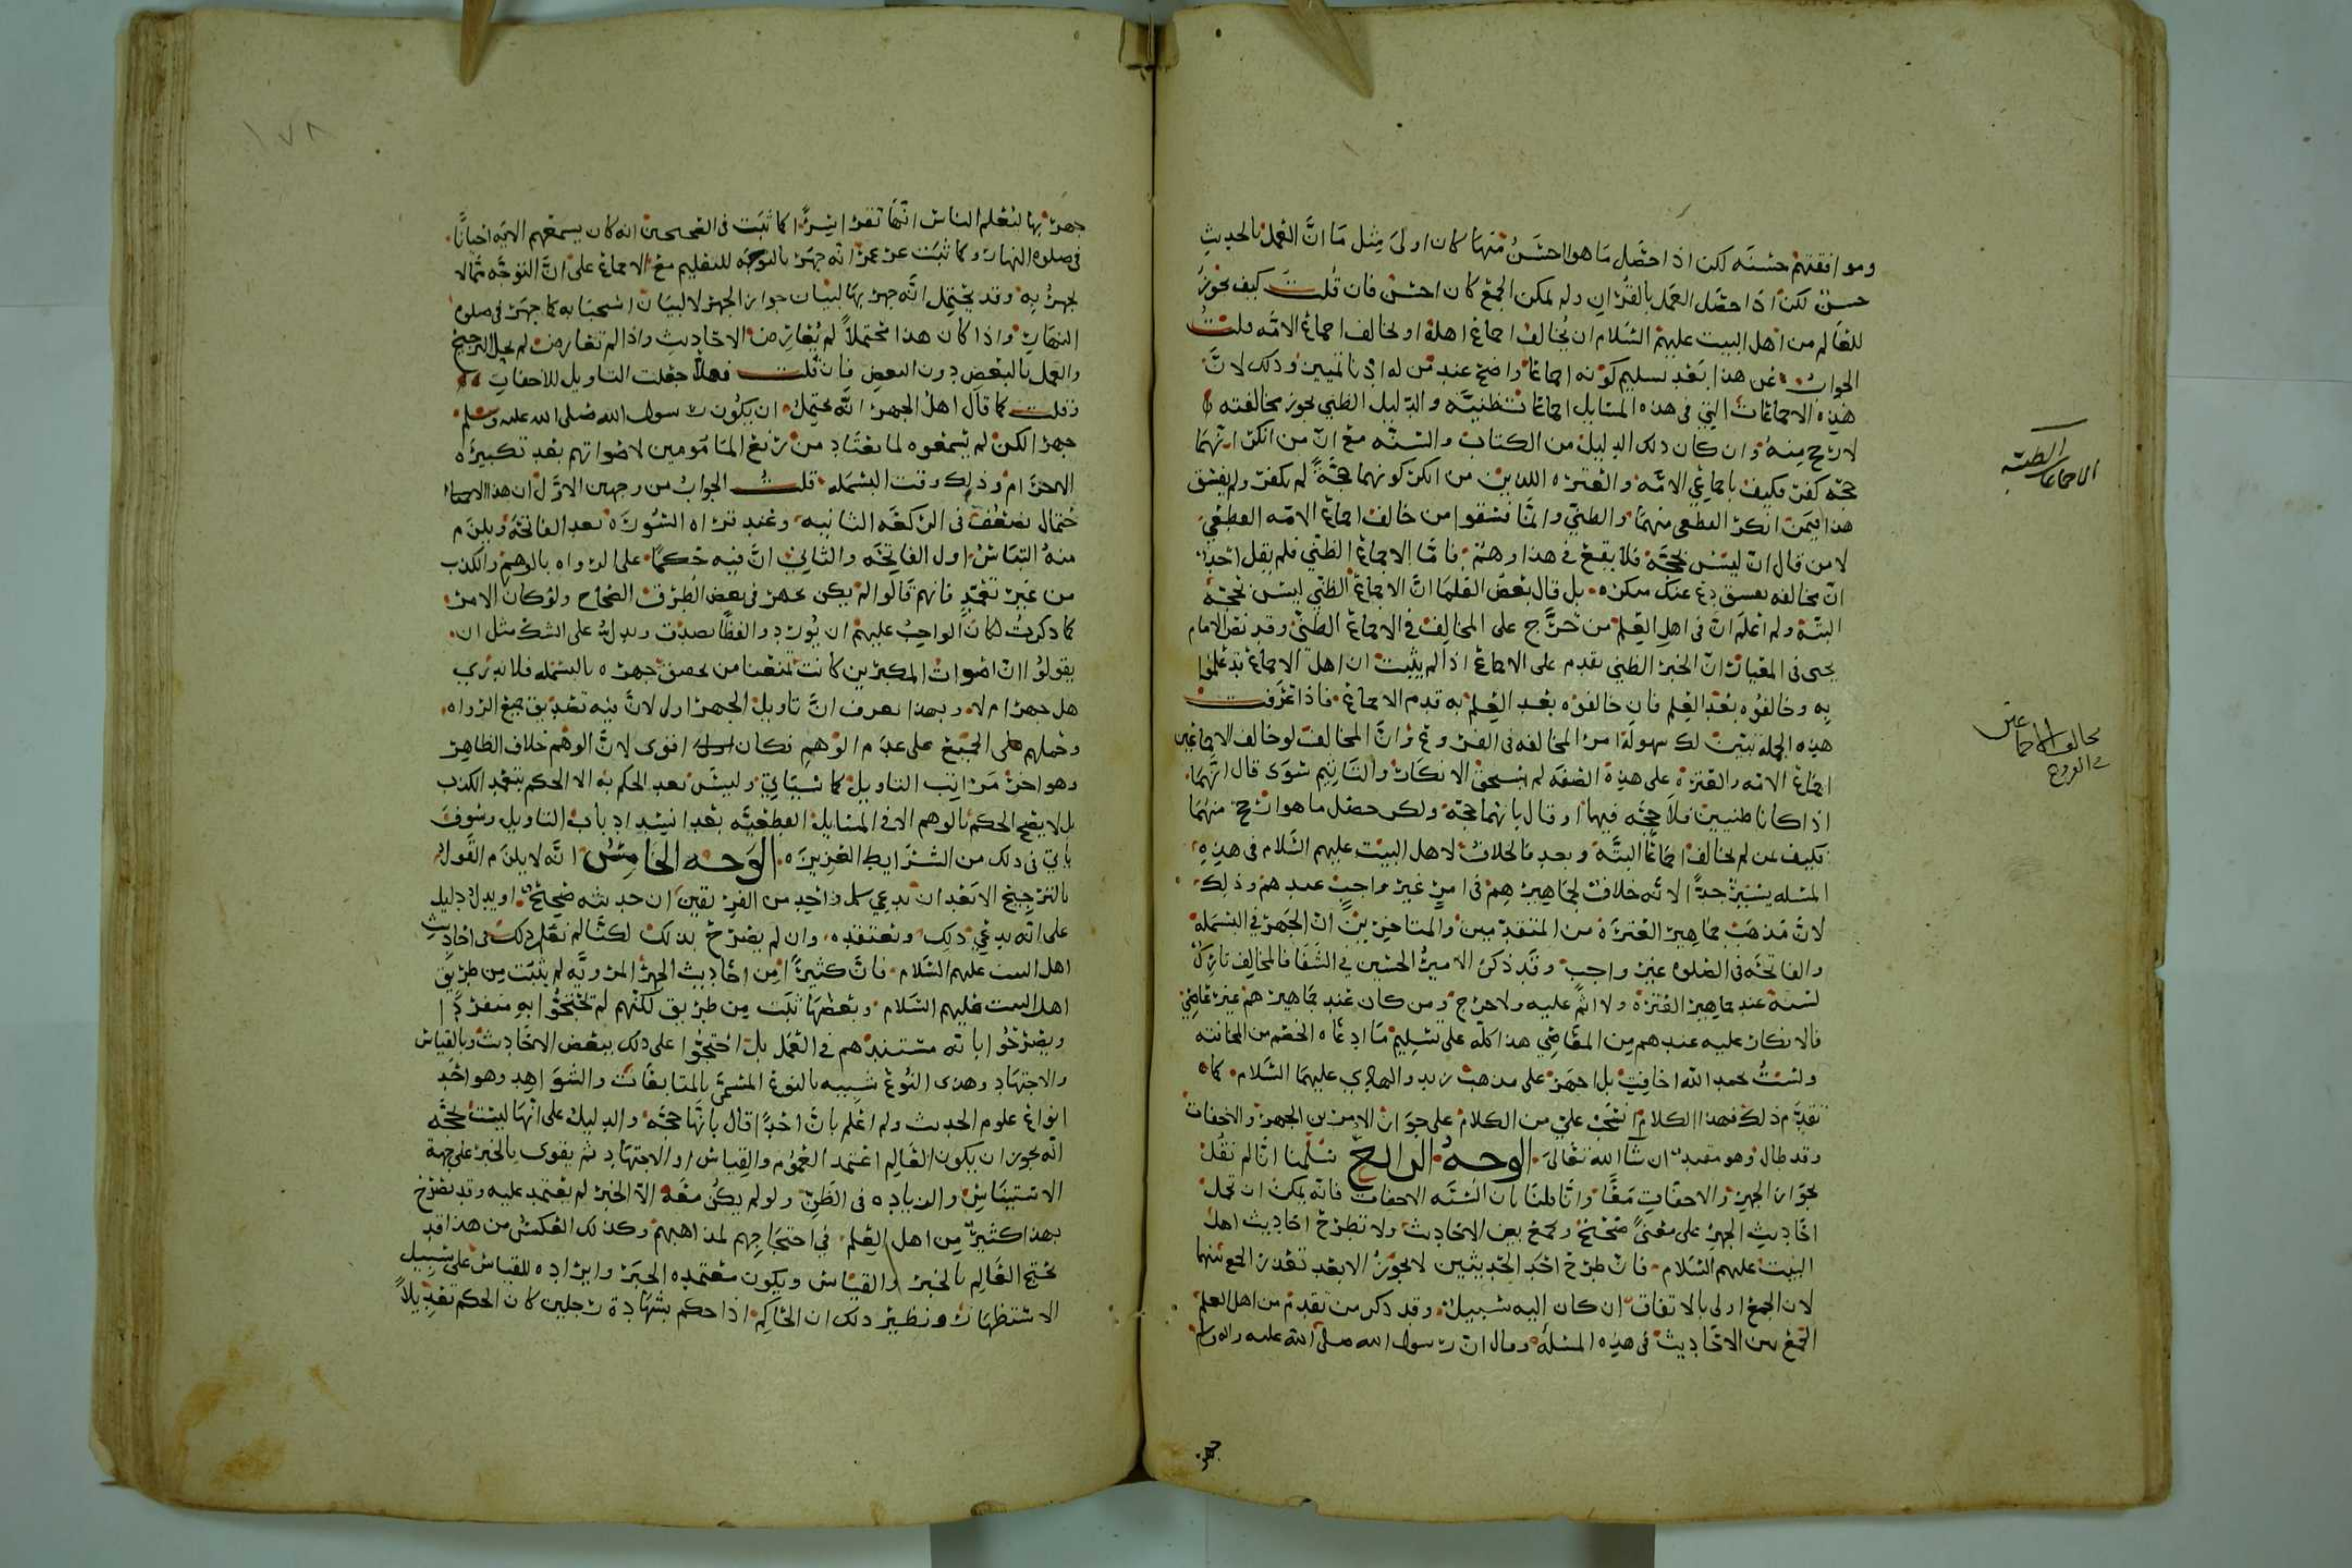 وموافقتهم حسنه لكن اذا حصل ما هو احسن منها كان اولى مثل ما ان العمل بالحديث
حسن لكن اذا حصل العمل بالقران ولم يمكن الجمع كان احسن فان قلت كيف يجوز
للعالم من اهل البيت عليهم السلام ان يخالف اجماع اهله او يخالف اجماع الامه قلت
الجواب عن هذا بعد تسليم كونه اجماعا واضح عند من له ادنا تمييز وذلك لان
هذه الاجماعات التي في هذه المسايل اجماعات ظنيه والدليل الظني يجوز مخالفته
لارجح منه وان كان ذلك الدليل من الكتاب والسنه مع ان من انكر انهما
حجه كفر فكيف باجماعي الامه والعتره اللذين من انكر كونهما حجة لم يكفر ولم يفسق
هذا فيمن انكر القطعي منهما والظني وانما فسقوا من خالف اجماع الامه القطعي
لا من قال انه ليس بحجه فلا يقع في هذا وهم فاما الاجماع الظني فلم يقل احد
ان مخالفه يفسق دع عنك منكره بل قال بعض العلما ان الاجماع الظني ليس بحجه
البته ولم اعلم ان في اهل العلم من حرج على المخالف في الاجماع الظني وقد نص الامام
يحيى في المعيار ان الخبر الظني يقدم على الاجماع اذا لم يثبت ان اهل الاجماع قد علموا
به وخالفوه بعد العلم فان خالفوه بعد العلم به قدم الاجماع فاذا عرفت
هذه الجمله تبين لك سهولة امر المخالفه في الفروع وان المخالف لو خالف الاجماعين
اجماع الامه والعتره على هذه الصفه لم يستحق الانكار والتاثيم سوى قال انهما
اذا كانا ظنيين فلا حجه فيهما او قال بانهما حجه ولكن حصل ما هو ارجح منهما
فكيف بمن لم يخالف اجماعا البته وبعد فالخلاف لاهل البيت عليهم السلام في هذه
المسله يسير جدا لانه خلاف لجماهيرهم في امر غير واجب عندهم وذلك
لان مذهب جماهير العتره من المتقدمين والمتاخرين ان الجهر في البسمله
والفاتحه في الصلوه غير واجب وقد ذكر الامير الحسين في الشفا فالمخالف تارك
لسنة عند جماهير العتره ولا اثم عليه ولا حرج ومن كان عند جماهيرهم غير عاصي
فالانكار عليه عندهم من المعاصي هذا كله على تسليم ما ادعاه الخصم من المخافته
ولست بحمد الله اخافت بل اجهر على مذهب زيد والهادي عليهما السلام كما
تقدم ذلك فهذا الكلام انسحب علي من الكلام على جواز الامرين الجهر والاخفات
وقد طال وهو مفيد ان شا الله تعالى الوجه الرابع سلمنا انا لم نقل
بجواز الجهر والاخفات معا وانا قلنا بان السنه الاخفات فانه يمكن ان تحمل
احاديث الجهر على معنى صحيح ونجمع بين الاحاديث ولا تطرح احاديث اهل
البيت عليهم السلام فان طرح احد الحديثين لا يجوز الا بعد تعذر الجمع بينهما
لان الجمع اولى بالاتفاق ان كان اليه سبيل وقد ذكر من تقدم من اهل العلم
الجمع بين الاحاديث في هذه المسله وقال ان رسول الله صلى الله عليه واله وسلم
جهر
الاجماعات الظنيه
مخالف الاجماعين
في الفروع
١٧٨
جهر بها لتعلم الناس انها تقرا سرا كما ثبت في الصحيحين انه كان يسمعهم الايه احيانا
في صلوه النهار وكما ثبت عن عمر انه جهر بالتوجه للتعليم مع الاجماع على ان التوجه مما لا
يجهر به وقد يحتمل انه جهر بها لبيان جواز الجهر لا لبيان استحبابه كما جهر في صلوه
النهار واذا كان هذا محتملا لم يعارض الاحاديث واذا لم تتعارض لم يحل الترجيح
والعمل بالبعض دون البعض فان قلت فهلا جعلت التاويل للاخفات
وقلت كما قال اهل الجهر انه يحتمل ان يكون رسول الله صلى الله عليه وسلم
جهر لكن لم يسمعوه لما يعتاد من رفع المامومين لاصواتهم بعد تكبيره
الاحرام وذلك وقت البسمله قلت الجواب من وجهين الاول ان هذا
احتمال يضعف في الركعه الثانيه وعند قراه السوره بعد الفاتحه ويلزم
منه التباس اول الفاتحه والثاني ان فيه حكما على الرواه بالوهم والكذب
من غير تعمد فانهم قالوا لم يكن يجهر في بعض الطرق الصحاح ولو كان الامر
كما ذكرت لكان الواجب عليهم ان يوردوا لفظا يصدق ويدل على الشك مثل ان
يقولوا ان اصوات المكبرين كانت تمنعنا من تحقيق جهره بالبسمله فلا ندري
هل جهر ام لا وبهذا يعرف ان تاويل الجهر اولى لان فيه تصديق جميع الرواه
وحملهم على الجميع على عدم الوهم فكان اقوى لان الوهم خلاف الظاهر
وهو اخر مراتب التاويل كما سياتي وليس بعد الحكم به الا الحكم بتعمد الكذب
بل لا يصح الحكم بالوهم الا في المسايل القطعيه بعد انسداد باب التاويل وسوف
ياتي في ذلك من الشرايط العزيزه الوجه الخامس انه لا يلزم القول
بالترجيح الا بعد ان يدعي كل واحد من الفريقين ان حديثه صحيح او يدل دليل
على انه يدعي ذلك ويعتقده وان لم يصرح بذلك لكنا لم نعلم ذلك في احاديث
اهل البيت عليهم السلام فان كثيرا من احاديث الجهر المرويه لم يثبت من طريق
اهل البيت عليهم السلام وبعضها ثبت من طريق لكنهم لم يحتجوا به منفردا
ويصرحوا بانه مستندهم في العمل بل احتجوا على ذلك ببعض الاحاديث وبالقياس
والاجتهاد وهذا النوع شبيه بالنوع المسمى بالمتابعات والشواهد وهو احد
انواع علوم الحديث ولم اعلم بان احدا قال بانها حجه والدليل على انها ليست بحجه
انه يجوز ان يكون العالم اعتمد العموم والقياس او الاجتهاد ثم يقوى بالخبر على جهة
الاستيناس والزياده في الظن ولو لم يكن معه الا الخبر لم يعتمد عليه وقد يصرح
بهذا كثير من اهل العلم في احتجاجهم لمذاهبهم وكذلك العكس من هذا قد
يحتج العالم بالخبر والقياس ويكون معتمده الخبر وايراده للقياس على سبيل
الاستظهار ونظير ذلك ان الحاكم اذا حكم بشهادة رجلين كان الحكم تعديلا